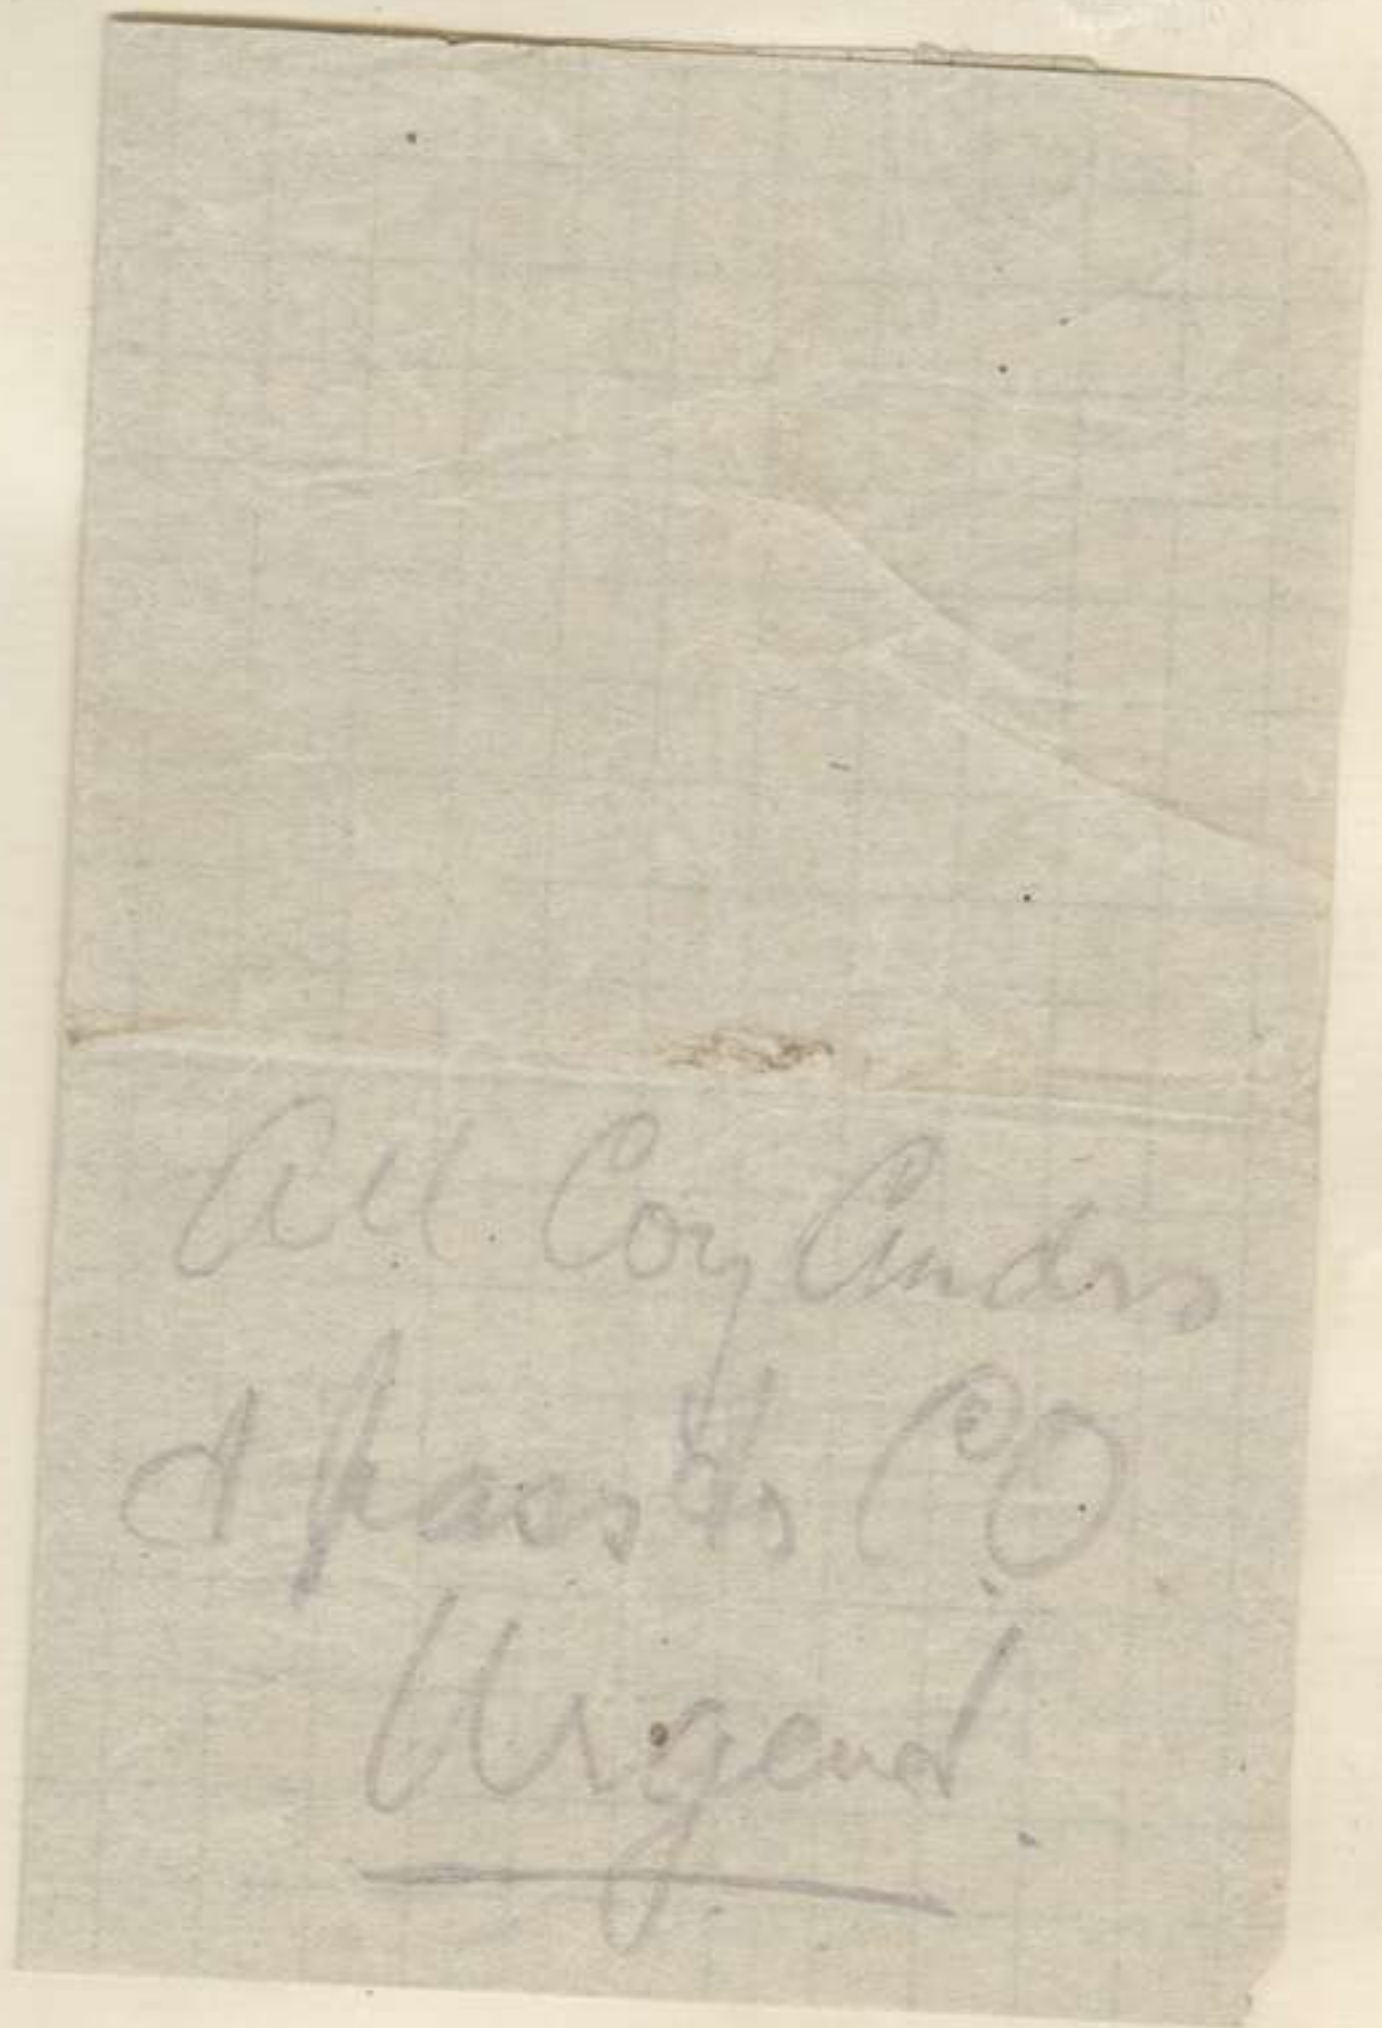 All Coy Cmdrs
& pass to CO.
Urgent.